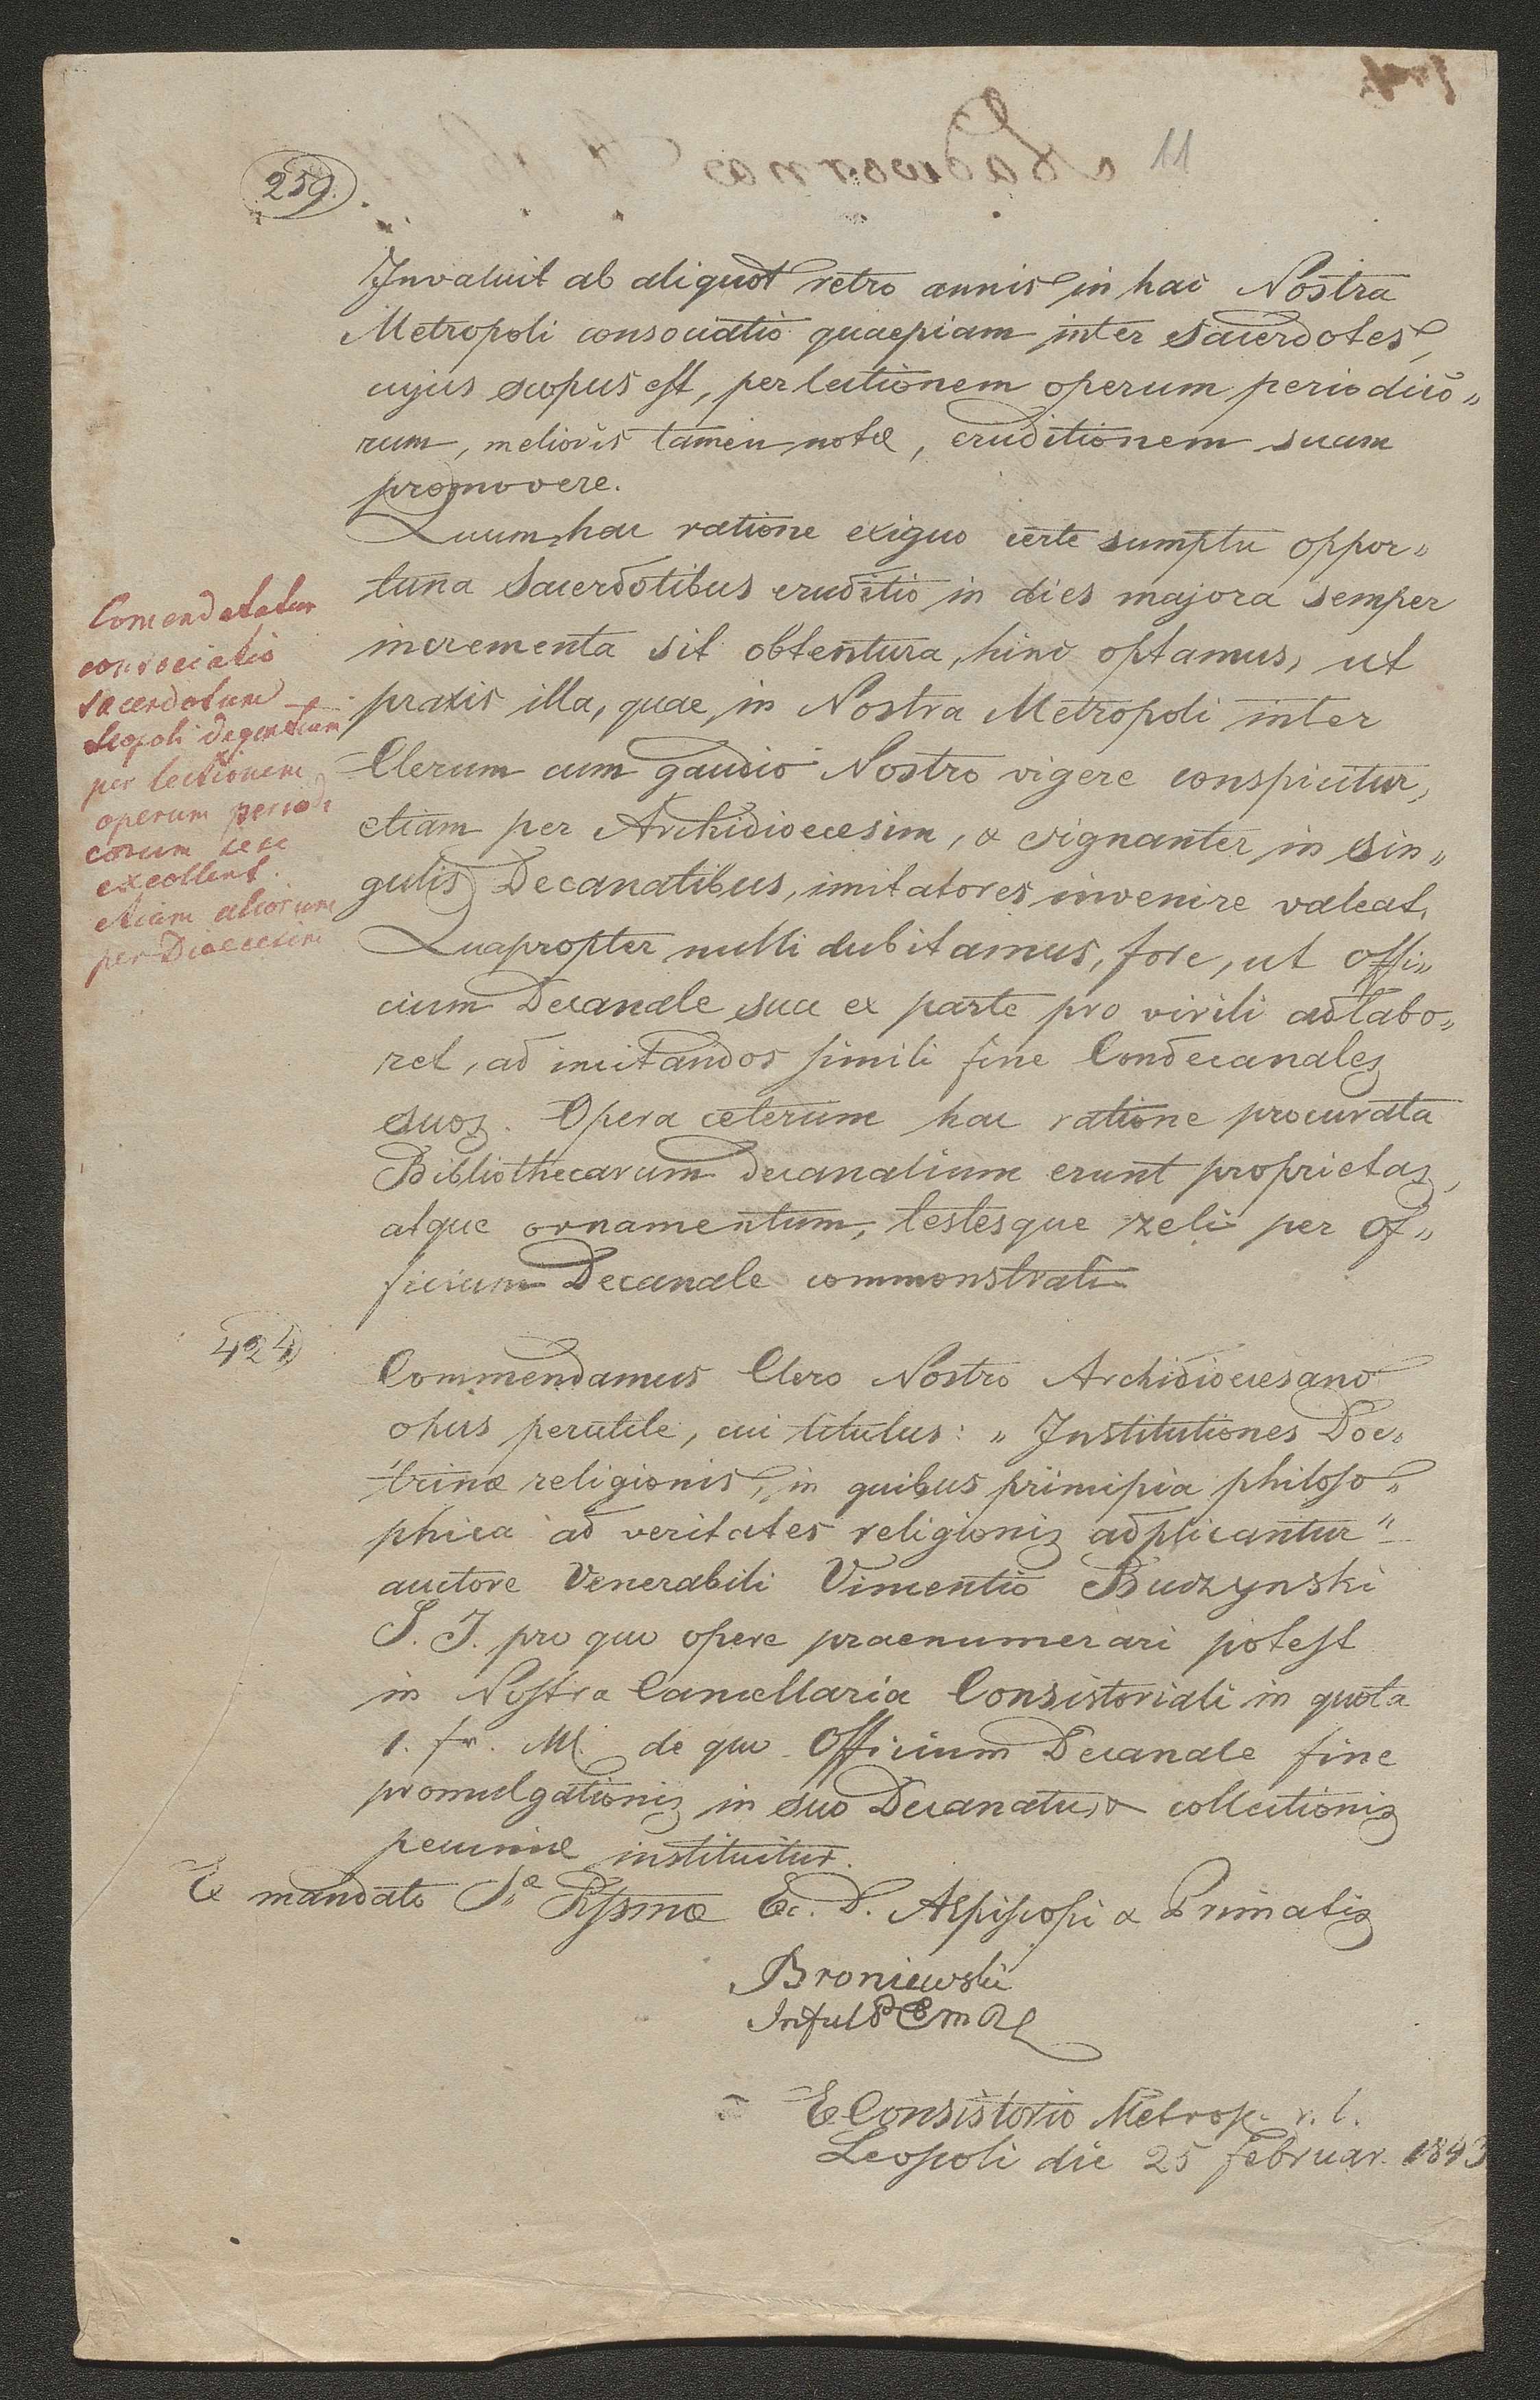 11
259.
Invaluit ab aliquot retro annis in hac Nostra
Metropoli consociatio quaepiam inter Sacerdotes,
cujus scopus est, per lectionem operum periodico„
rum, melioris tamen notæ, eruditionem suam
promovere.
Quum hac ratione exiguo certe sumptu oppor„
tuna Sacerdotibus eruditio in dies majora semper
incrementa sit obtentura, hinc optamus, ut
praxis illa, quae in Nostra Metropoli inter
Clerum cum gaudio Nostro vigere conspicitur,
etiam per Archidioecesim, & signanter in sin„
gulis Decanatibus, imitatores invenire valeat.
Quapropter nulli dubitamus, fore, ut offi„
cium Decanale sua ex parte pro virili adlabo„
ret, ad incitandos simili fine Condecanales
suos. Opera ceterum hac ratione procurata
Bibliothecarum decanalium erunt proprietas,
atque ornamentum, testesque zeli per of„
ficium Decanale commonstrati
Comendatur
consociatio
sacerdotum
Leopoli degentium
per lectionem
operum periodi
corum sese
excollent.
etiam aliorum
per Dioecesim
424
Commendamus Clero Nostro Archidioecesano
opus perutile, cui titulus: „Institutiones Doc„
trinæ religionis, in quibus principia philoso„
phica ad veritates religionis adplicantur"
auctore Venerabili Vincentio Buczynski
S. J. pro quo opere praenumerari potest
in Nostra Cancellaria Consistoriali in quota
1. fr. M. de quo Officium Decanale fine
promulgationis in suo Decanatu, & collectionis
pecuniæ instituitur.
E mandato Sæ Rssmæ Ec. D. AEpiscopi & Primatis
Broniewski
E Consistorio Metrop. r. l.
Leopoli die 25 Februar. 1843